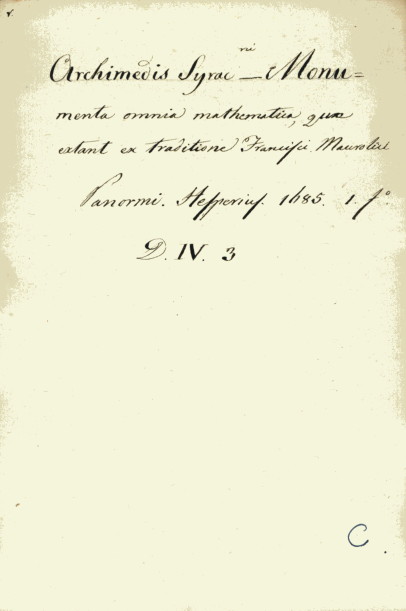 ni
Archimedis Syrac – Monu=
menta omnia mathematica, quae
extant ex traditione Francisci Maurolici
Panormi. Hesperius. 1685. 1. fo
D. IV. 3
C